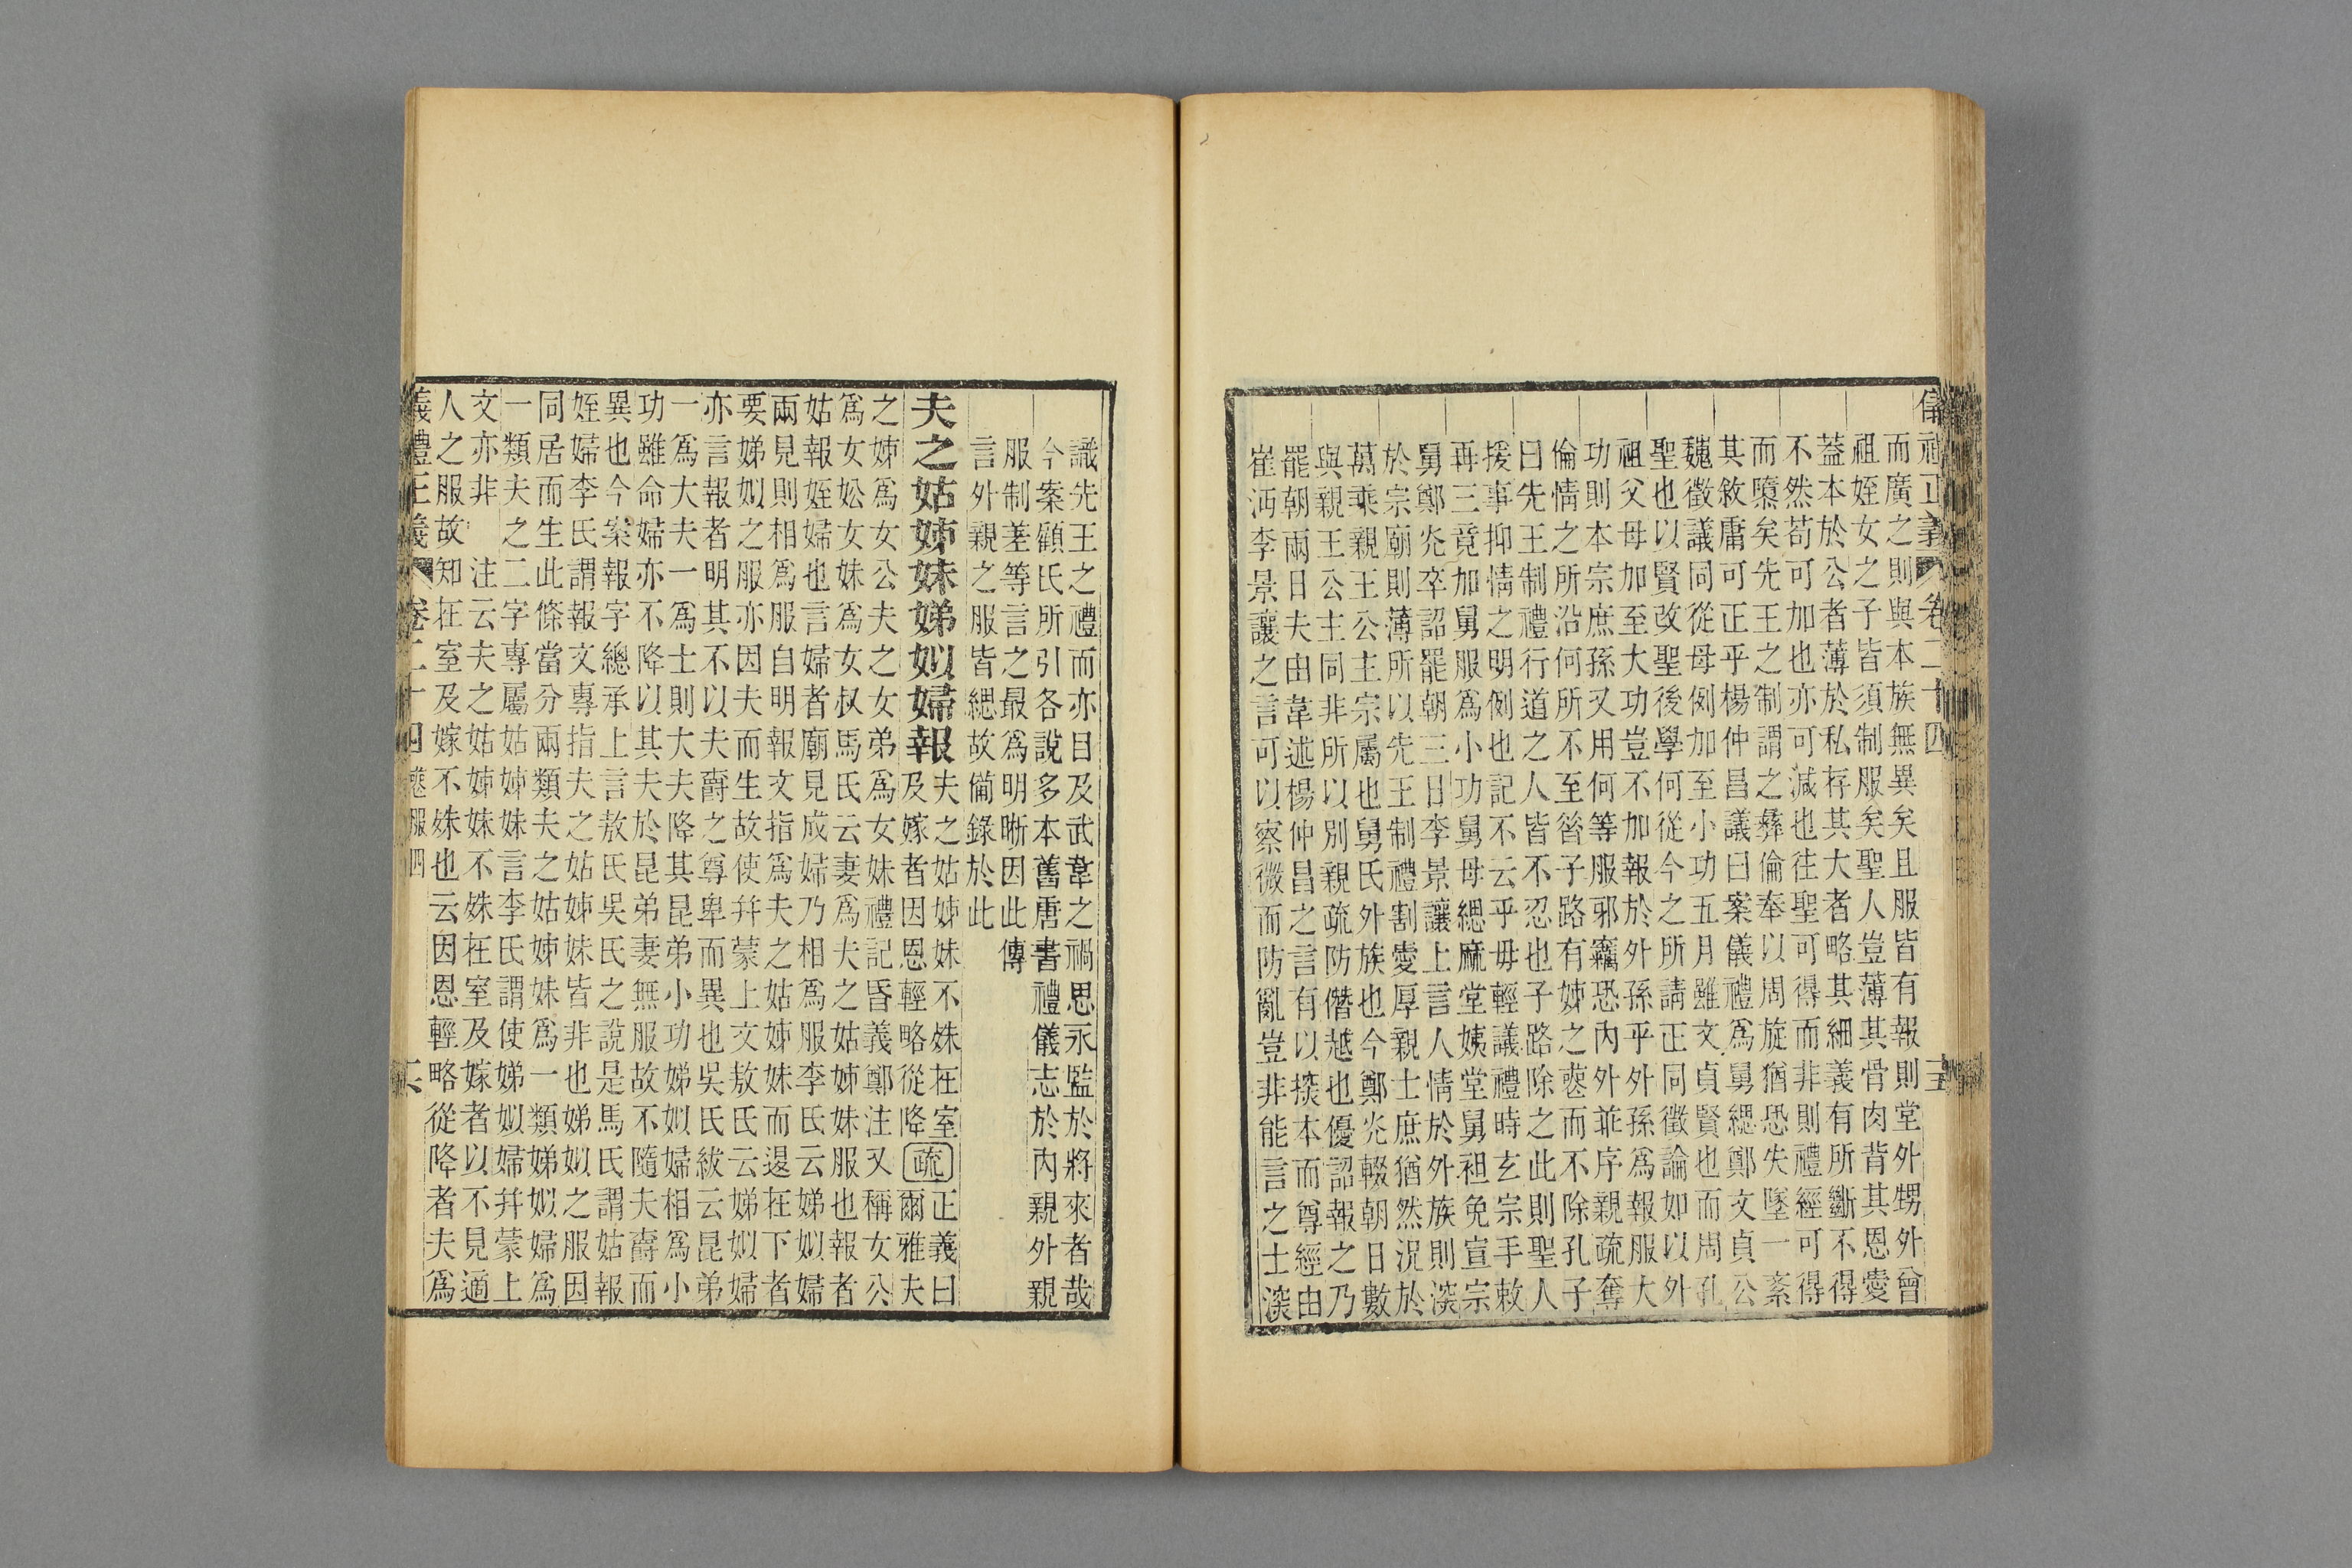 儀禮正義 卷二十四 五
而廣之則與本族無異矣且服皆有報則堂外甥外曾
祖姪女之子皆須制服矣聖人豈薄其骨肉背其恩愛
蓋本於公者薄於私存其大者略其細義有所斷不得
不然苟可加也亦可減也往聖可得而非則禮經可得
而隳矣先王之制謂之彝倫奉以周旋猶恐失墜一紊
其敘庸可正乎楊仲昌議曰案儀禮爲舅緦鄭文貞公
魏徵議同從母例加至小功五月雖文貞賢也而周孔
聖也以賢改聖後學何從今之所請正同徵論如以外
祖父母加至大功豈不加報於外孫乎外孫爲報服大
功則本宗庶孫又用何等服邪竊恐內外乖序親疏奪
倫情之所沿何所不至昝子路有姊之喪而不除孔子
曰先王制禮行道之人皆不忍也子路除之此則聖人
援事抑情之明例也記不云乎毋輕議禮時玄宗手敕
再三竟加舅服爲小功舅母緦麻堂姨堂舅袒免宣宗
舅鄭光卒詔罷朝三日李景讓上言人情於外族則深
於宗廟則薄所以先王制禮割愛厚親士庶猶然況於
萬乘親王公主宗屬也舅氏外族也今鄭光輟朝日數
與親王公主同非所以別親疏防僭越也優詔報之乃
罷朝兩日夫由韋述楊仲昌之言有以探本而尊經由
崔沔李景讓之言可以察微而防亂豈非能言之士深
識先王之禮而亦目及武韋之禍思永監於將來者哉
今案顧氏所引各說多本舊唐書禮儀志於內親外親
服制差等言之最爲明晰因此傳
言外親之服皆緦故備錄於此
夫之姑姊妹娣姒婦報 夫之姑姊妹不殊在室及嫁者因恩輕略從降 疏 正義曰爾雅夫
之姊爲女公夫之女弟爲女妹禮記昏義鄭注又稱女公
爲女妐女妹爲女叔馬氏云妻爲夫之姑姊妹服也報者
姑報姪婦也言婦者廟見成婦乃相爲服李氏云娣姒婦
兩見則相爲服自明報文指爲夫之姑姊妹而退在下者
要娣姒之服亦因夫而生故使幷蒙上文敖氏云娣姒婦
亦言報者明其不以夫爵之尊卑而異也吳氏紱云昆弟
一爲大夫一爲士則大夫降其昆弟小功娣姒婦相爲小
功雖命婦亦不降以其夫於昆弟妻無服故不隨夫爵而
異也今案報字總承上言敖氏吳氏之說是馬氏謂姑報
姪婦李氏謂報文專指夫之姑姊妹皆非也娣姒之服因
同居而生此條當分兩類夫之姑姊妹爲一類娣姒婦爲
一類夫之二字專屬姑姊妹言李氏謂使娣姒婦幷蒙上
文亦非 注云夫之姑姊妹不殊在室及嫁者以不見適
人之服故知在室及嫁不殊也云因恩輕略從降者夫爲
義禮正義 卷二十四 喪服四 六